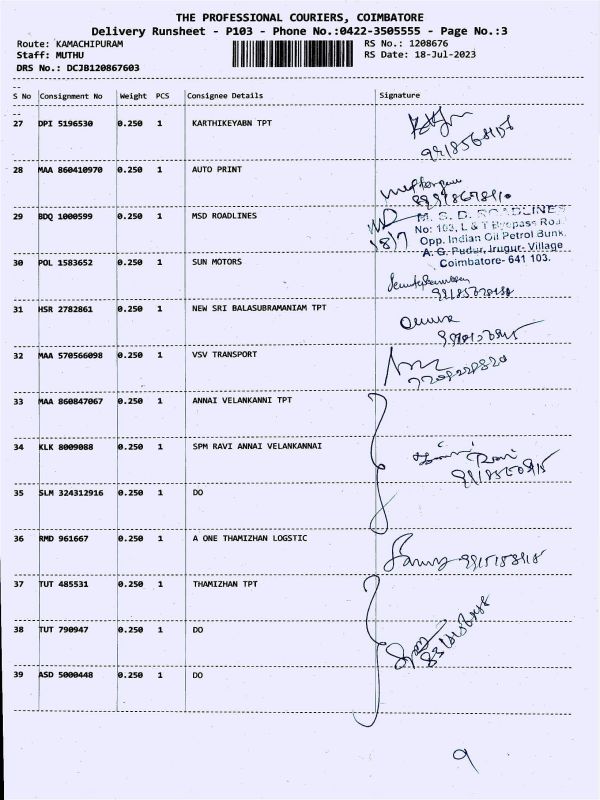 THE PROFESSIONAL COURIERS, COIMBATORE
Delivery Runsheet - P103 - Phone No.:0422-3505555 - Page No.:3
Route: KAMACHIPURAM RS No.: 1208676
Staff: MUTHU RS Date: 18-Jul-2023
DRS No.: DCJB120867603
S No Consignment No Weight PCS Consignee Details Signature
27 DPI 5196530 0.250 1 KARTHIKEYABN TPT
28 MAA 860410970 0.250 1 AUTO PRINT
29 BDQ 1000599 0.250 1 MSD ROADLINES
18/7
M. S. D. ROADLINES
No: 103, L & T Byepass Road
Opp. Indian Oil Petrol Bunk,
A. G. Pudur, Irugur- Village
Coimbatore- 641 103.
30 POL 1583652 0.250 1 SUN MOTORS
31 HSR 2782861 0.250 1 NEW SRI BALASUBRAMANIAM TPT
32 MAA 570566098 0.250 1 VSV TRANSPORT
33 MAA 860847067 0.250 1 ANNAI VELANKANNI TPT
34 KLK 8009088 0.250 1 SPM RAVI ANNAI VELANKANNAI
Ravi
35 SLM 324312916 0.250 1 DO
36 RMD 961667 0.250 1 A ONE THAMIZHAN LOGSTIC
37 TUT 485531 0.250 1 THAMIZHAN TPT
38 TUT 790947 0.250 1 DO
39 ASD 5000448 0.250 1 DO
9